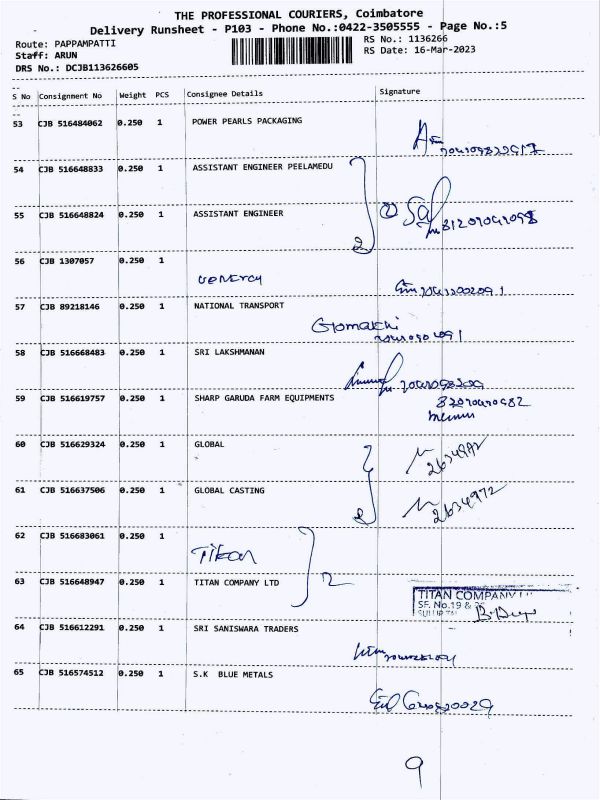 THE PROFESSIONAL COURIERS, Coimbatore
Delivery Runsheet - P103 - Phone No.:0422-3505555 - Page No.:5
Route: PAPPAMPATTI
RS No.: 1136266
Staff: ARUN
RS Date: 16-Mar-2023
DRS No.: DCJB113626605
S No Consignment No Weight PCS Consignee Details Signature
53 CJB 516484062 0.250 1 POWER PEARLS PACKAGING
54 CJB 516648833 0.250 1 ASSISTANT ENGINEER PEELAMEDU
55 CJB 516648824 0.250 1 ASSISTANT ENGINEER
2
56 CJB 1307057 0.250 1
57 CJB 89218146 0.250 1 NATIONAL TRANSPORT
Gomathi
58 CJB 516668483 0.250 1 SRI LAKSHMANAN
59 CJB 516619757 0.250 1 SHARP GARUDA FARM EQUIPMENTS
60 CJB 516629324 0.250 1 GLOBAL
61 CJB 516637506 0.250 1 GLOBAL CASTING
2634972
2
62 CJB 516683061 0.250 1
Titan
63 CJB 516648947 0.250 1 TITAN COMPANY LTD
2
TITAN COMPANY
SF. No.19 &
64 CJB 516612291 0.250 1 SRI SANISWARA TRADERS
65 CJB 516574512 0.250 1 S.K BLUE METALS
9